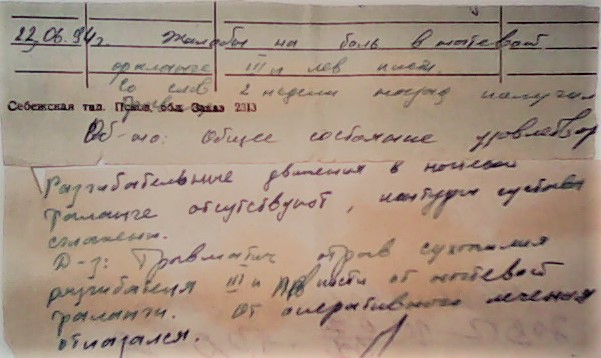 22.06.94г. Жалобы на боль в ногтевой
фаланге III п лев кисти.
Со слов 2 недели назад получил
Себежская тип. Псков. обл. Заказ 2313
Об-но: Общее состояние удовлетвор
Разгибательные движения в ногтевой
фаланге отсутствуют, контуры сустава
сглажены.
Д-з: Травматич отрыв сухожилия
разгибателя III п кисти от ногтевой
фаланги. От оперативного лечения
отказался.